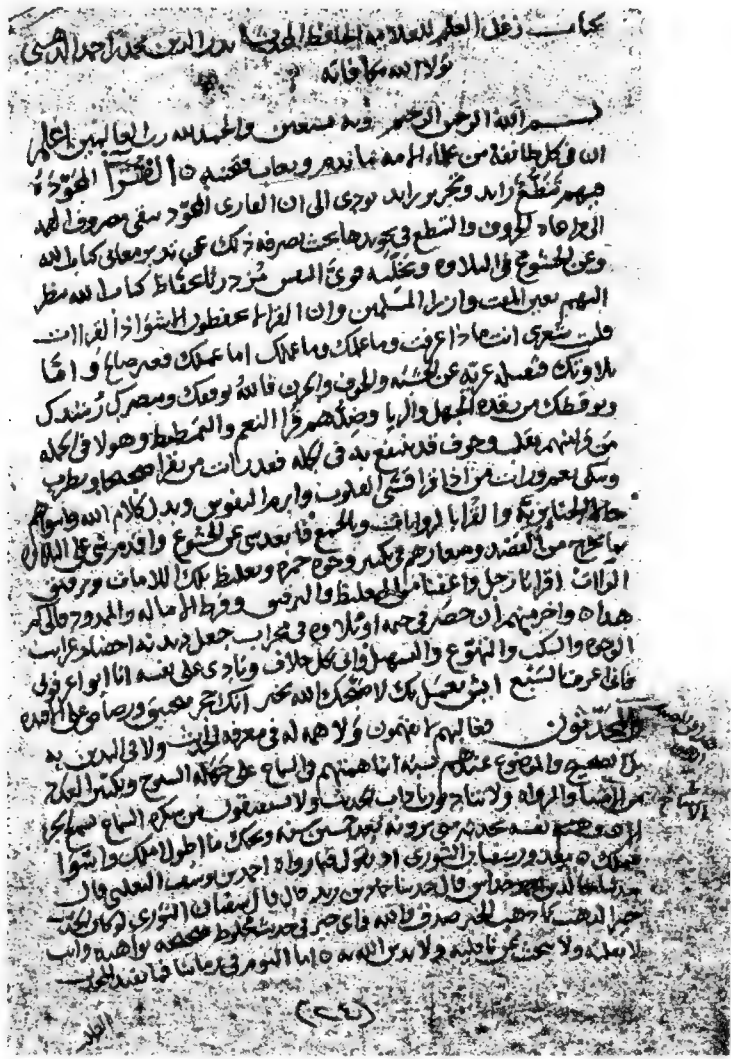 كتاب زغل العلم للعلامة الحافظ محمد بن احمد الذهبي
تولاه الله مكافاته
بسم الله الرحمن الرحيم وبه نستعين والحمد لله رب العالمين اعلم
ان في كل طائفة من علماء الامة ما يذم ويعاب فتجنبه القراء المجودة
فيهم تنطع زايد وتحرير زايد يودي الى ان القاري المجود يبقى مصروف الهمة
الى مراعاة الحروف والتنطع في تجويدها بحيث يصرفه ذلك عن تدبر معاني كتاب الله
وعن الخشوع في التلاوة ويخليه قوي النفس مزدريا لحفاظ كتاب الله ينظر
اليهم بعين المقت وان المسلمين وان القراء لا يحفظون الا شواذ القراات
فليت شعري انت ماذا عرفت وما علمك وما عملك اما عملك فغير صالح واما
تلاوتك فثقيلة عرية عن الخشية والحزن والخوف فالله يوفقك ويبصرك رشدك
ويوقظك من رقدة الجهل والريا وضدهم قراء النغم والتمطيط وهولاء في الجملة
من قرا منهم بقلب وخوف قد ينتفع به في الجملة فقد رايت من يقرا صحيحا ويطرب
ويبكي نعم ورايت من اذا قرا قسى القلوب وابرم النفوس وبدل كلام الله واسوأهم
حالا الجنايزية والقراء بالروايات وبالجمع فابعد شي عن الخشوع واقدم شي على التلاوة
بما يخرج من القصد وشعارهم في تكثير وجوه حمزة وتغليظ تلك اللامات وترقيق
الراات اقرا يا رجل واعفنا من التغليظ والترقيق وفرط الامالة والمدود
هذا واخر منهم ان حضر في ختمة او تلاوة في محراب جعل ديدنه احضار غرايب
الوجوه والسكت والتهوع والتسهيل واتى بكل خلاف ونادى على نفسه انا اعرفوني
فاني عارف بالسبع ايش نعمل بك لا صبحك الله بخير انك حجر منجنيق ورصاص على الافئدة
المحدثون فغالبهم لا يفهمون ولا همة لهم في معرفة الحديث ولا في التدين به
بل الصحيح والموضوع عندهم بنسبة انما همتهم في السماع على جهلة الشيوخ وتكثير العدد
من الاجزاء والرواة ولا يتادبون باداب الحديث ولا يستفيقون من سكرة السماع
يسمع الجزء ونفسه تحدثه متى يرويه بعد خمسين سنة ويحك ما اطول املك واسوا
عملك معذور سفيان الثوري اذ يقول فيما رواه احمد بن يوسف التغلبي
حدثنا خالد بن خداش قال حدثنا حماد بن زيد قال قال سفيان الثوري لو كان الحديث
خيرا لذهب كما ذهب الخير صدق والله فاي خير في حديث مخلوط صحيحه بواهيه وانت
لا تفليه ولا تبحث عن ناقليه ولا تدين الله به اما اليوم في زماننا فما يفيد المحدث
(٢٤)